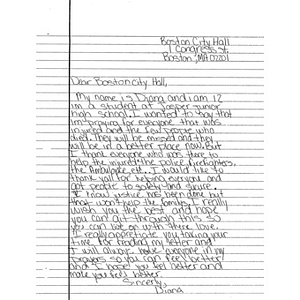 Boston City Hall
1 Congress st.
Boston, MA 02201
Dear Boston City Hall,
My name is Diana and i am 12
im a student at Jasper junior
high school. I wanted to say that
im praying for everyone that was
injured and the few people who
died. They will be missed and they
will be in a better place now. But
I thank everyone who was there to
help the injured the police, firefighters,
the Ambulance etc. I would like to
thank yall for helping everyone and
got people to safety and secure.
I know justice has been done but
that wont help the families. I really
wish you the best and hope
you can get through this so
you can live on with there love.
I really appreciate you taking your
time for reading my letter and
I will always have everyone in my
prayers so you can feel better
and I hope you feel better and
make you feel better.
Sincerly,
Diana